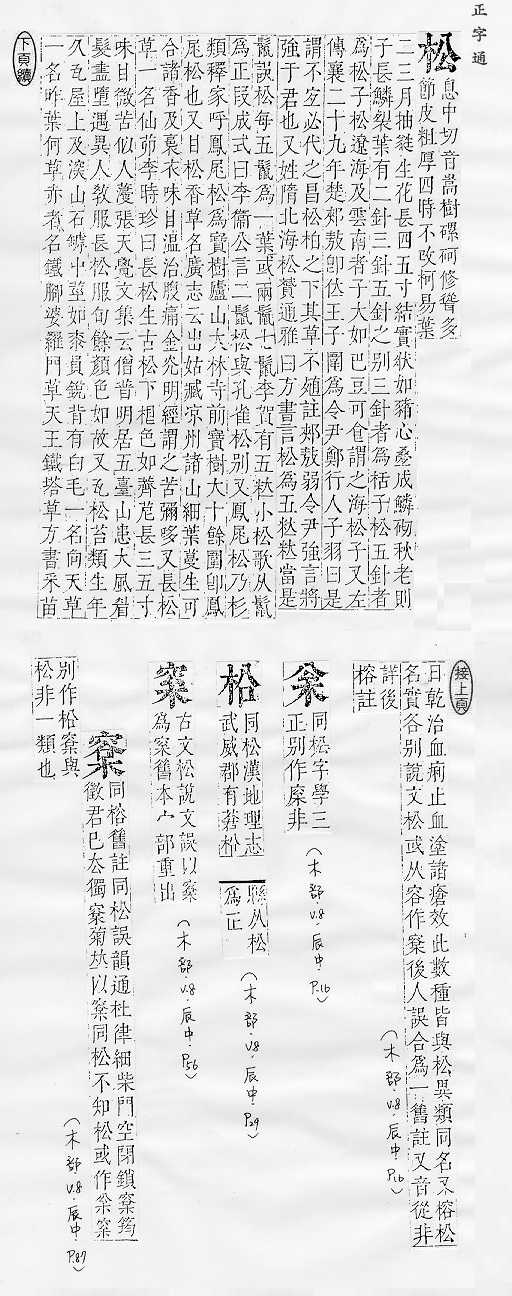 正字通
松
息中切音嵩樹磥砢修聳多
節皮粗厚四時不改柯易葉
二三月抽蕤生花長四五寸結實狀如豬心疊成鱗砌秋老則
子長鱗裂葉有二針三針五針之別三針者為栝子松五針者
為松子松遼海及雲南者子大如巴豆可食謂之海松子又左
傳襄二十九年楚郟敖卽位王子圍為令尹鄭行人子羽曰是
謂不宜必代之昌松柏之下其草不殖註郟敖弱令尹強言將
強于君也又姓隋北海松贇通雅曰方書言松為五粒粒當是
鬣誤松每五鬣為一葉或兩鬣七鬣李賀有五粒小松歌从鬣
為正段成式曰李衞公言二鬣松與孔雀松別又鳳尾松乃杉
類釋家呼鳳尾松為寶樹廬山大林寺前寶樹大十餘圍卽鳳
尾松也又甘松香草名廣志云出姑臧凉州諸山細葉蔓生可
合諸香及裛衣味甘溫治腹痛金光明經謂之苦彌哆又長松
草一名仙茆李時珍曰長松生古松下根色如薺苨長三五寸
味甘微苦似人薓張天覺文集云僧普明居五臺山患大風眉
髮盡墮遇異人敎服長松服旬餘顏色如故又瓦松苔類生年
久瓦屋上及深山石罅中莖如漆員銳背有白毛一名向天草
一名昨葉何草赤者名鐵腳婆羅門草天王鐵塔草方書采苗
下頁續
接上頁
日乾治血痢止血塗諸瘡效此數種皆與松異類同名又榕松
名實各別說文松或从容作㮤後人誤合為一舊註又音從非
詳後
榕註
枀
同松字學三
正別作庺非
(木部.V.8.辰中.P.16)
(木部.V.8.辰中.P.16)
同松漢地理志
武威郡有蒼松
縣从松
為正
(木部.V.8.辰中.P.29)
㮤
古文松說文誤以㮤
為㮤舊本宀部重出
(木部.V.8.辰中.P.56)
同榕舊註同松誤韻通杜律細柴門空閉鎖㮤筠
徵君已去獨㮤菊㳟以㮤同松不知松或作枀㮤
別作枩㮤與
松非一類也
(木部.V.8.辰中.P.87)